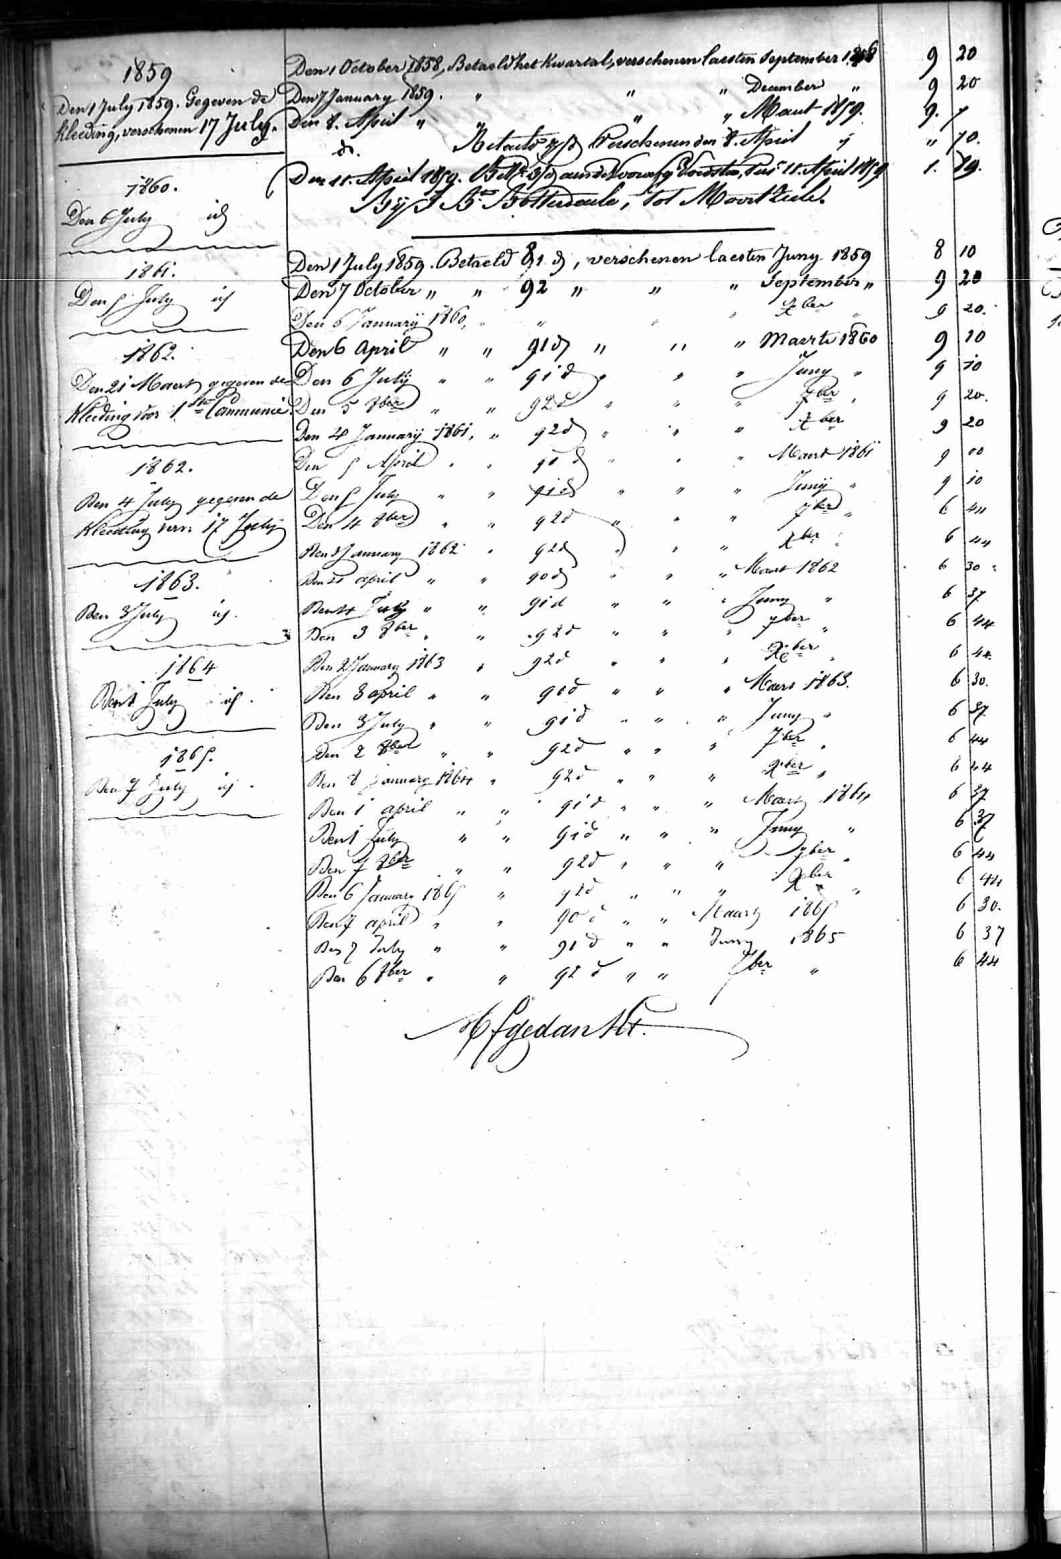 1859
Den 1 July 1859. Gegeven de
kleeding, verschenen 17 July.
1860.
Den 6 July id
1861.
Den 5 July id
1862.
Den 21 Maert gegeven de
kleeding voor 1ste Communie.
1862.
Den 4 July gegeven de
kleeding vers. 17 July
1863.
Den 3 July id.
1864
Den 1 July id.
1865.
Den 7 July id.
Den 1 October 1858, Betaeld het kwartael, verschenen laesten September 1858 9 20
Den 7 January 1859. " " " December " 9 20
Den 8. April " " " Maart 1859. 9. "
Verschenen den 8. April " 70.
Den 11. April 1859. 11 April 1859 1. 79.
Bij J. Bte tot Moortzeele.
Den 1 July 1859. Betaeld 81 d, verschenen laesten Juny 1859 8 10
Den 7 October " " 92 " " " September " 9 20
Den 6 January 1860, " " " " Xber " 9 20.
Den 6 April " " 91 d " " " Maerte 1860 9 10
Den 6 July " " 91 d " " " Juny " 9 10
Den 5 8ber " " 92 d " " " 7ber " 9 20.
Den 4 January 1861, " 92 d " " " Xber 9 20
Den 5 April " " 90 d " " " Maert 1861 9 00
Den 5 July " " 91 d " " " Juny " 9 10
Den 4 8ber " " 92 d " " " 7ber " 6 44
Den 3 January 1862 " 92 d " " " Xber " 6 44
Den april " " 90 d " " " Maert 1862 6 30
Den 4 July " " 91 d " " " Juny " 6 37
Den 3 8ber " " 92 d " " " 7ber " 6 44
Den 2 January 1863 " 92 d " " " Xber " 6 44
Den 3 april " " 90 d " " " Maert 1863. 6 30.
Den 3 July " " 91 d " " " Juny " 6 37
Den 2 8ber " " 92 d " " " 7ber " 6 44
Den 8 January 1864 " 92 d " " " Xber " 6 44
Den 1 april " " 91 d " " " Maert 1864 6 37
Den 1 July " " 91 d " " " Juny " 6 37
Den 7 8ber " " 92 d " " " 7ber " 6 44
Den 6 January 1865 " 92 d " " " Xber " 6 44
Den 7 april " " 90 d " " Maart 1865 6 30.
Den 7 July " " 91 d " " Juny 1865 6 37
Den 6 8ber " " 92 d " " 7ber " 6 44
Afgedankt.